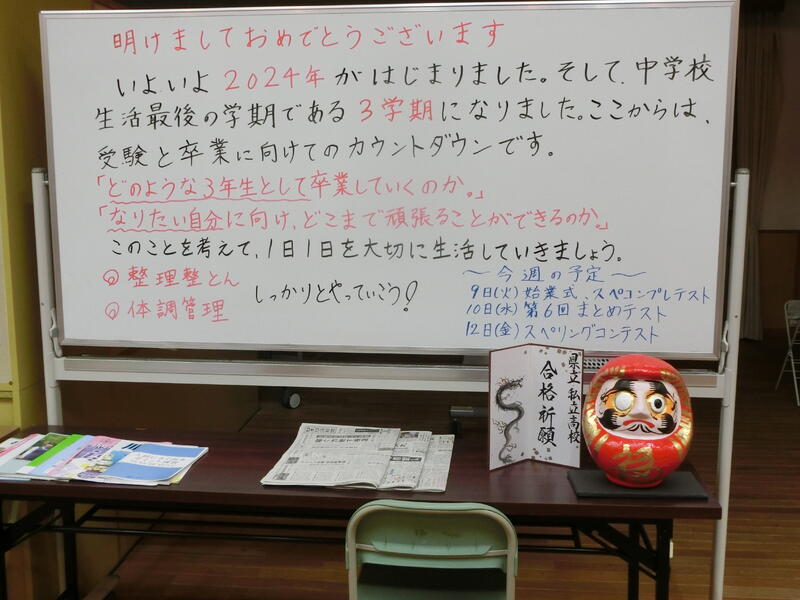 明けましておめでとうございます
いよいよ2024年がはじまりました。そして、中学校
生活最後の学期である3学期になりました。ここからは、
受験と卒業に向けてのカウントダウンです。
「どのような3年生として卒業していくのか。」
「なりたい自分に向け、どこまで頑張ることができるのか。」
このことを考えて、1日1日を大切に生活していきましょう。
◎整理整とん
◎体調管理
しっかりとやっていこう!
~今週の予定~
9日(火)始業式、スペコンプレテスト
10日(水)第6回まとめテスト
12日(金)スペリングコンテスト
県立 私立高校、
合格祈願